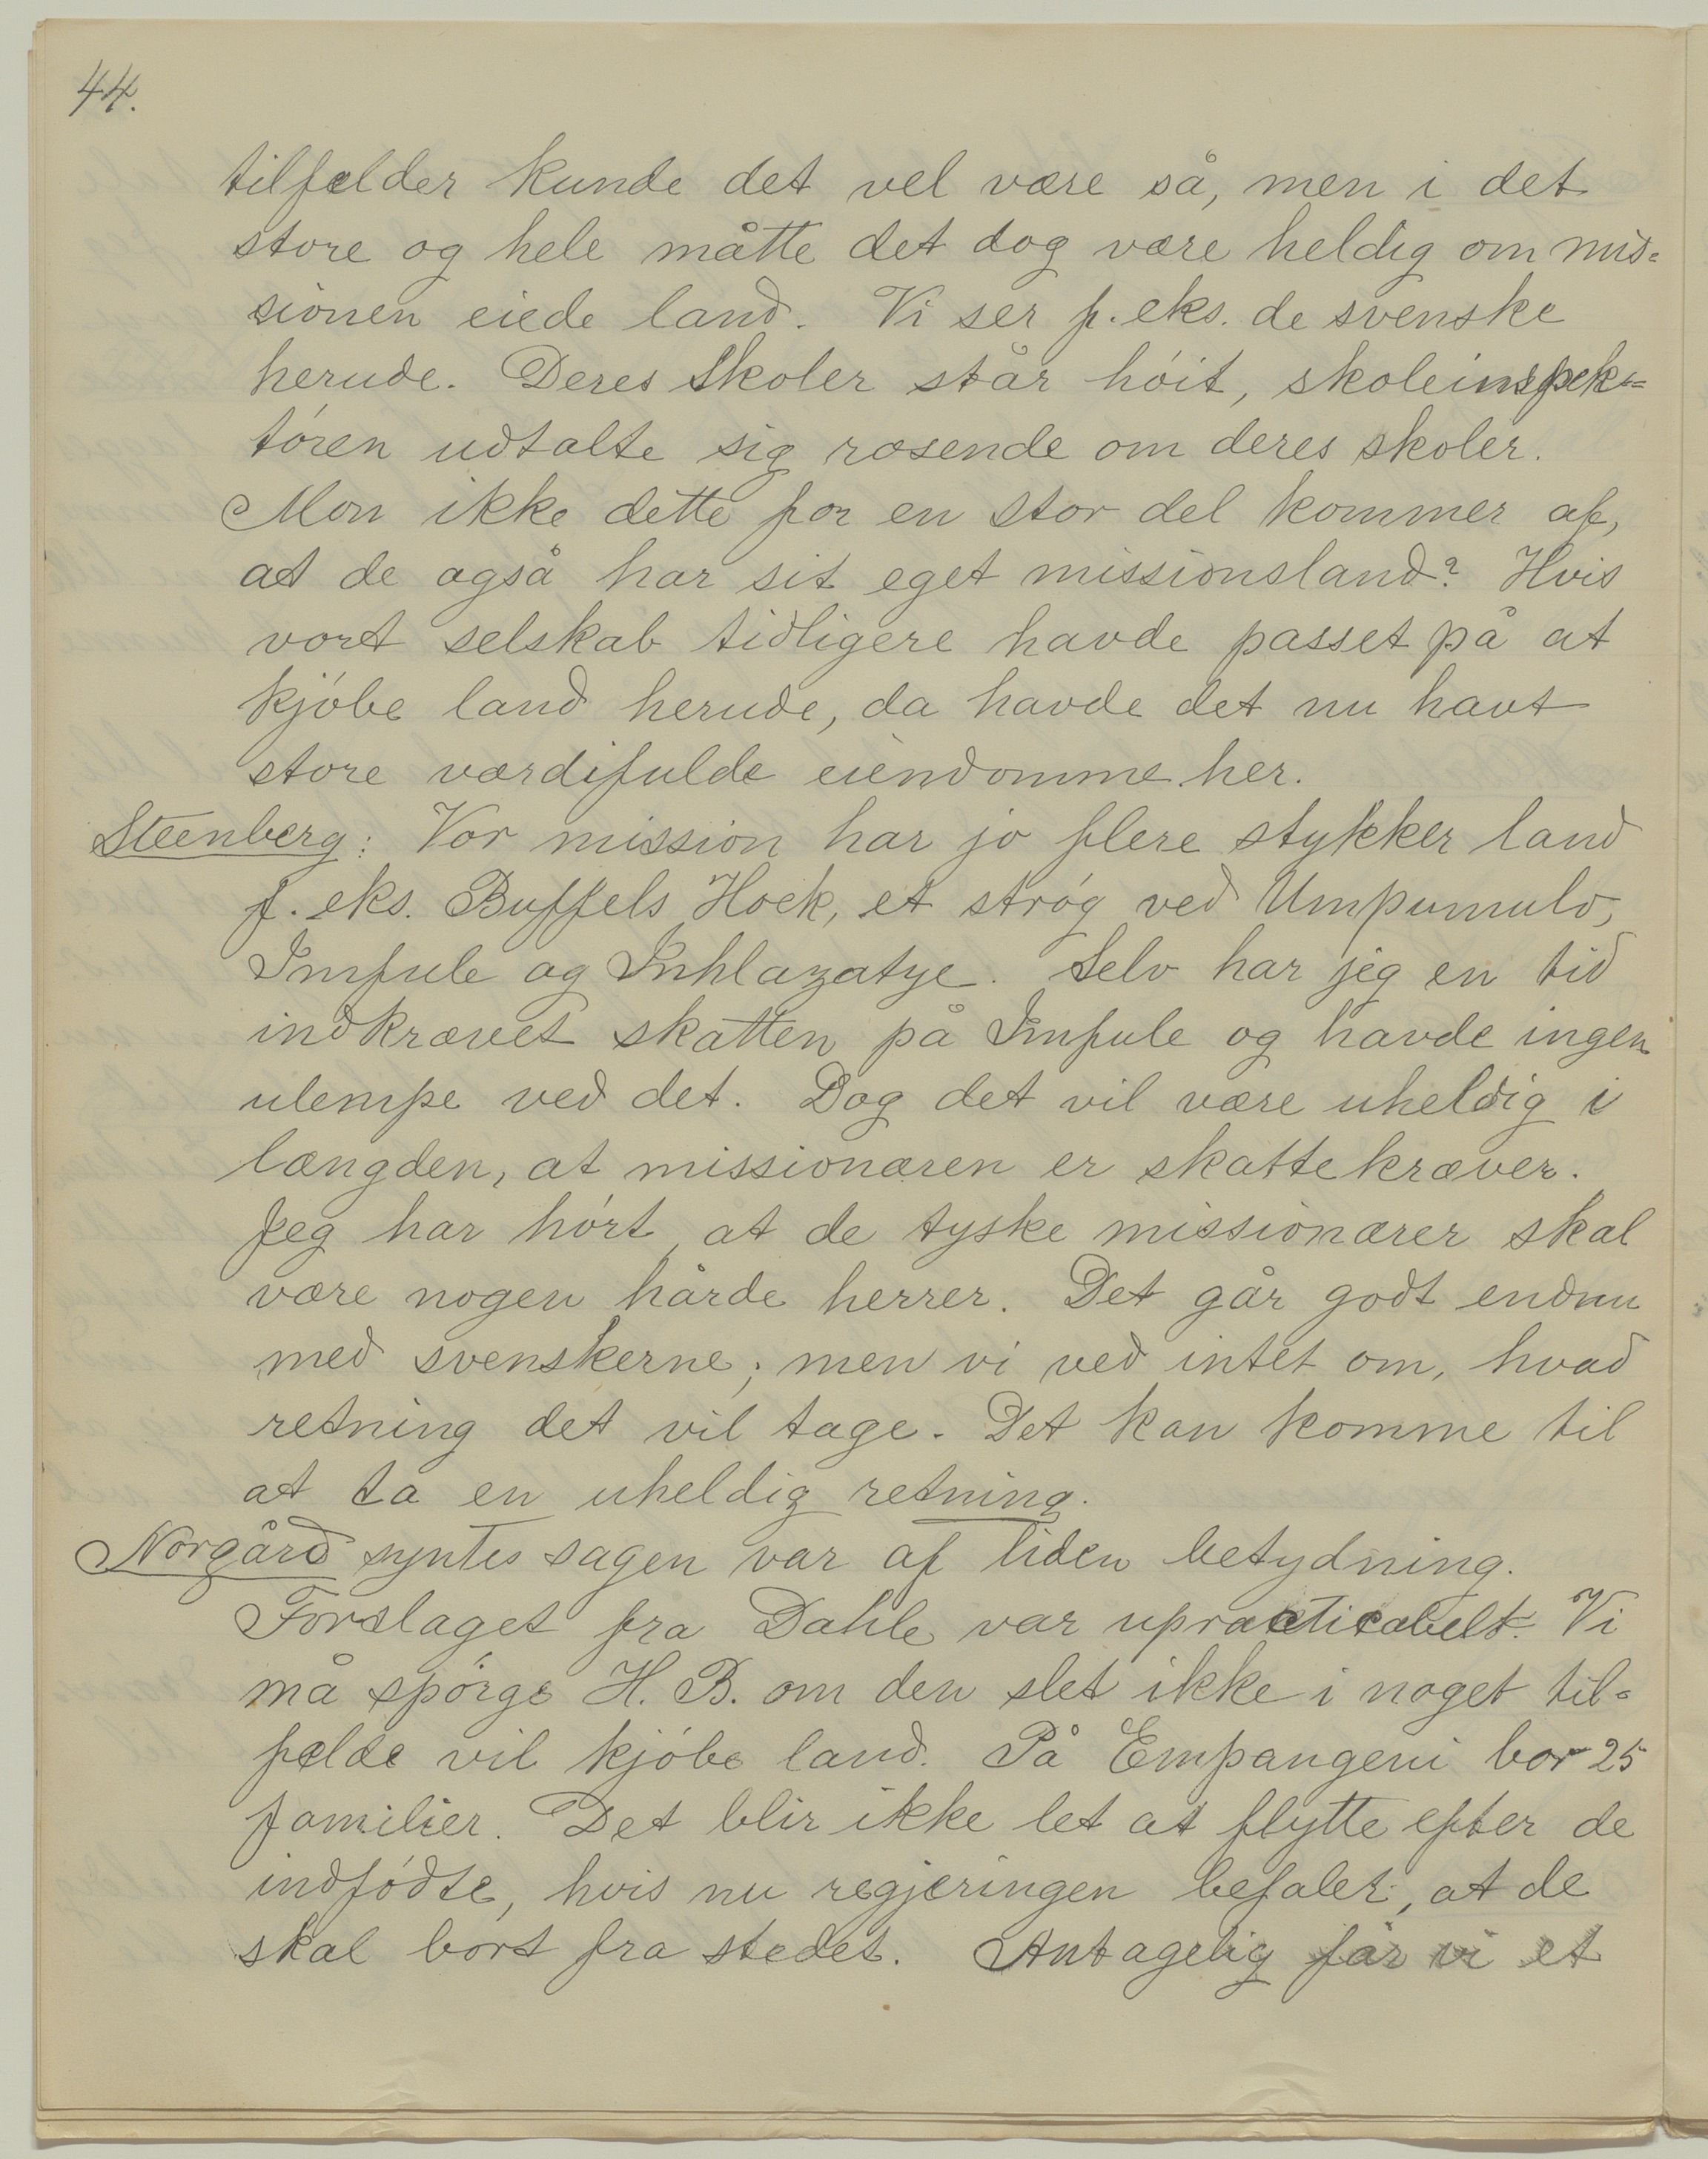 44.
tilfælder kunde det vel være så, men i det
store og hele måtte det dog være heldig om mis-
sionen eiede land. Vi ser f. eks. de svenske
herude. Deres Skoler står høit, skoleinspek-
tøren udtalte sig rosende om deres skoler.
Mon ikke dette for en stor del kommer af,
at de også har sit eget missionsland? Hvis
vort selskab tidligere havde passet på at
kjøbe land herude, da havde det nu havt
store værdifulde eiendomme her.
Steenberg: Vor mission har jo flere stykker land
f. eks. Buffels Hoek, et strøg ved Umpumulo,
Imfule og Inhlazatye. Selv har jeg en tid
indkrævet skatten på Imfule og havde ingen
ulempe ved det. Dog det vil være uheldig i
længden, at missionæren er skattekræver.
Jeg har hørt, at de tyske missionærer skal
være nogen hårde herrer. Det går godt endnu
med svenskerne; men vi ved intet om, hvad
retning det vil tage. Det kan komme til
at ta en uheldig retning.
Norgård syntes sagen var af liden betydning.
Forslaget fra Dahle var upracticabelt. Vi
må spørge H. B. om den slet ikke i noget til-
fælde vil kjøbe land. På Empangeni bor 25
familier. Det blir ikke let at flytte efter de
indfødte, hvis nu regjeringen befaler, at de
skal bort fra stedet. Antagelig får vi et